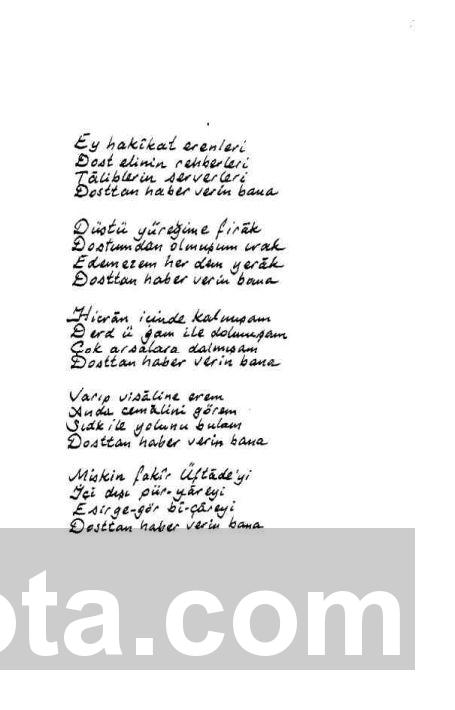 Ey hakîkat erenleri
Dost elinin rehberleri
Tâliblerin serverleri
Dosttan haber verin bana
Düştü yüreğime firâk
Dostumdan olmuşum ırak
Edemezem her dem yerâk
Dosttan haber verin bana
Hicrân içinde kalmışam
Derd ü gam ile dolmuşam
Çok arsalara dalmışam
Dosttan haber verin bana
Varıp visâline erem
Anda cemâlini görem
Sıdk ile yolunu bulam
Dosttan haber verin bana
Miskin fakîr Üftâde'yi
İçi dışı pür-yâreyi
Esirge-gör bî-çâreyi
Dosttan haber verin bana
ota.com